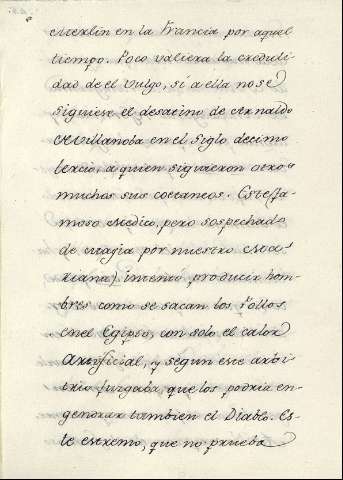 Merlin en la Francia por aquel
tiempo. Poco valiera la creduli
dad de el Vulgo, si a ella no se
siguiese el desatino de Arnaldo
de Villanoba en el Siglo decimo
tercio, a quien siguieron otros
muchos sus coetaneos. Este fa
moso Medico, pero sospechado
de Majia por nuestro (Ma
riana) intentó producir hom
bres como se sacan los Pollos
en el Egipto, con solo el calor
Artificial, y segun este arbi
trio juzgaba, que los podria en
gendrar tambien el Diablo. Es
te estremo, que no prueba